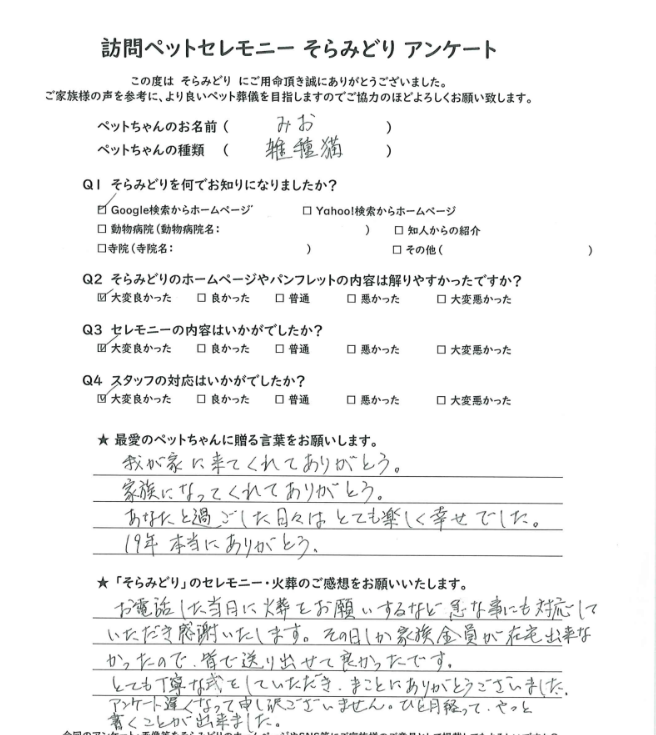 訪問ペットセレモニー そらみどり アンケート
この度は そらみどり にご用命頂き誠にありがとうございました。
ご家族様の声を参考に、より良いペット葬儀を目指しますのでご協力のほどよろしくお願い致します。
ペットちゃんのお名前 ( みお )
ペットちゃんの種類 ( 雑種猫 )
Q1 そらみどりを何でお知りになりましたか？
☑ Google検索からホームページ □ Yahoo!検索からホームページ
□ 動物病院(動物病院名: ) □ 知人からの紹介
□ 寺院(寺院名: ) □ その他( )
Q2 そらみどりのホームページやパンフレットの内容は解りやすかったですか？
☑ 大変良かった □ 良かった □ 普通 □ 悪かった □ 大変悪かった
Q3 セレモニーの内容はいかがでしたか？
☑ 大変良かった □ 良かった □ 普通 □ 悪かった □ 大変悪かった
Q4 スタッフの対応はいかがでしたか？
☑ 大変良かった □ 良かった □ 普通 □ 悪かった □ 大変悪かった
★ 最愛のペットちゃんに贈る言葉をお願いします。
我が家に来てくれてありがとう。
家族になってくれてありがとう。
あなたと過ごした日々はとても楽しく幸せでした。
19年 本当にありがとう。
★「そらみどり」のセレモニー・火葬のご感想をお願いいたします。
お電話した当日に火葬をお願いするなど 急な事にも対応して
いただき感謝いたします。その日しか家族全員が在宅出来な
かったので、皆で送り出せて良かったです。
とても丁寧な式をしていただき、まことにありがとうございました。
アンケート遅くなって申し訳ございません。ひと月経って、やっと
書くことが出来ました。